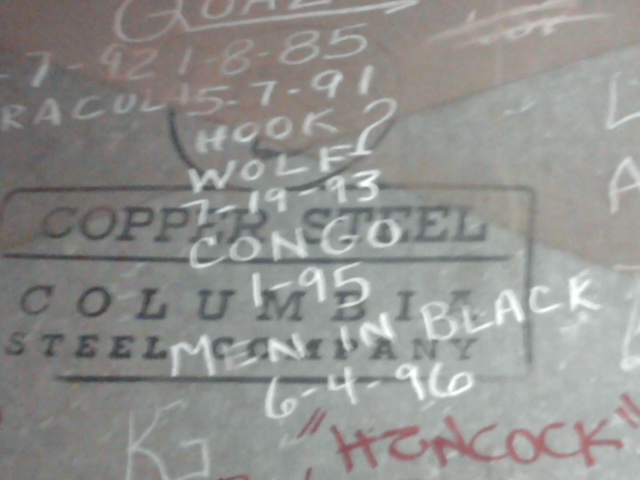 QUAL
-7-92 1-8-85
RACUL 5-7-91
HOOK ?
WOLF
7-19-93
COPPER STEEL
CONGO
1-95
COLUMBIA
MEN IN BLACK
STEEL COMPANY
6-4-96
"HANCOCK"